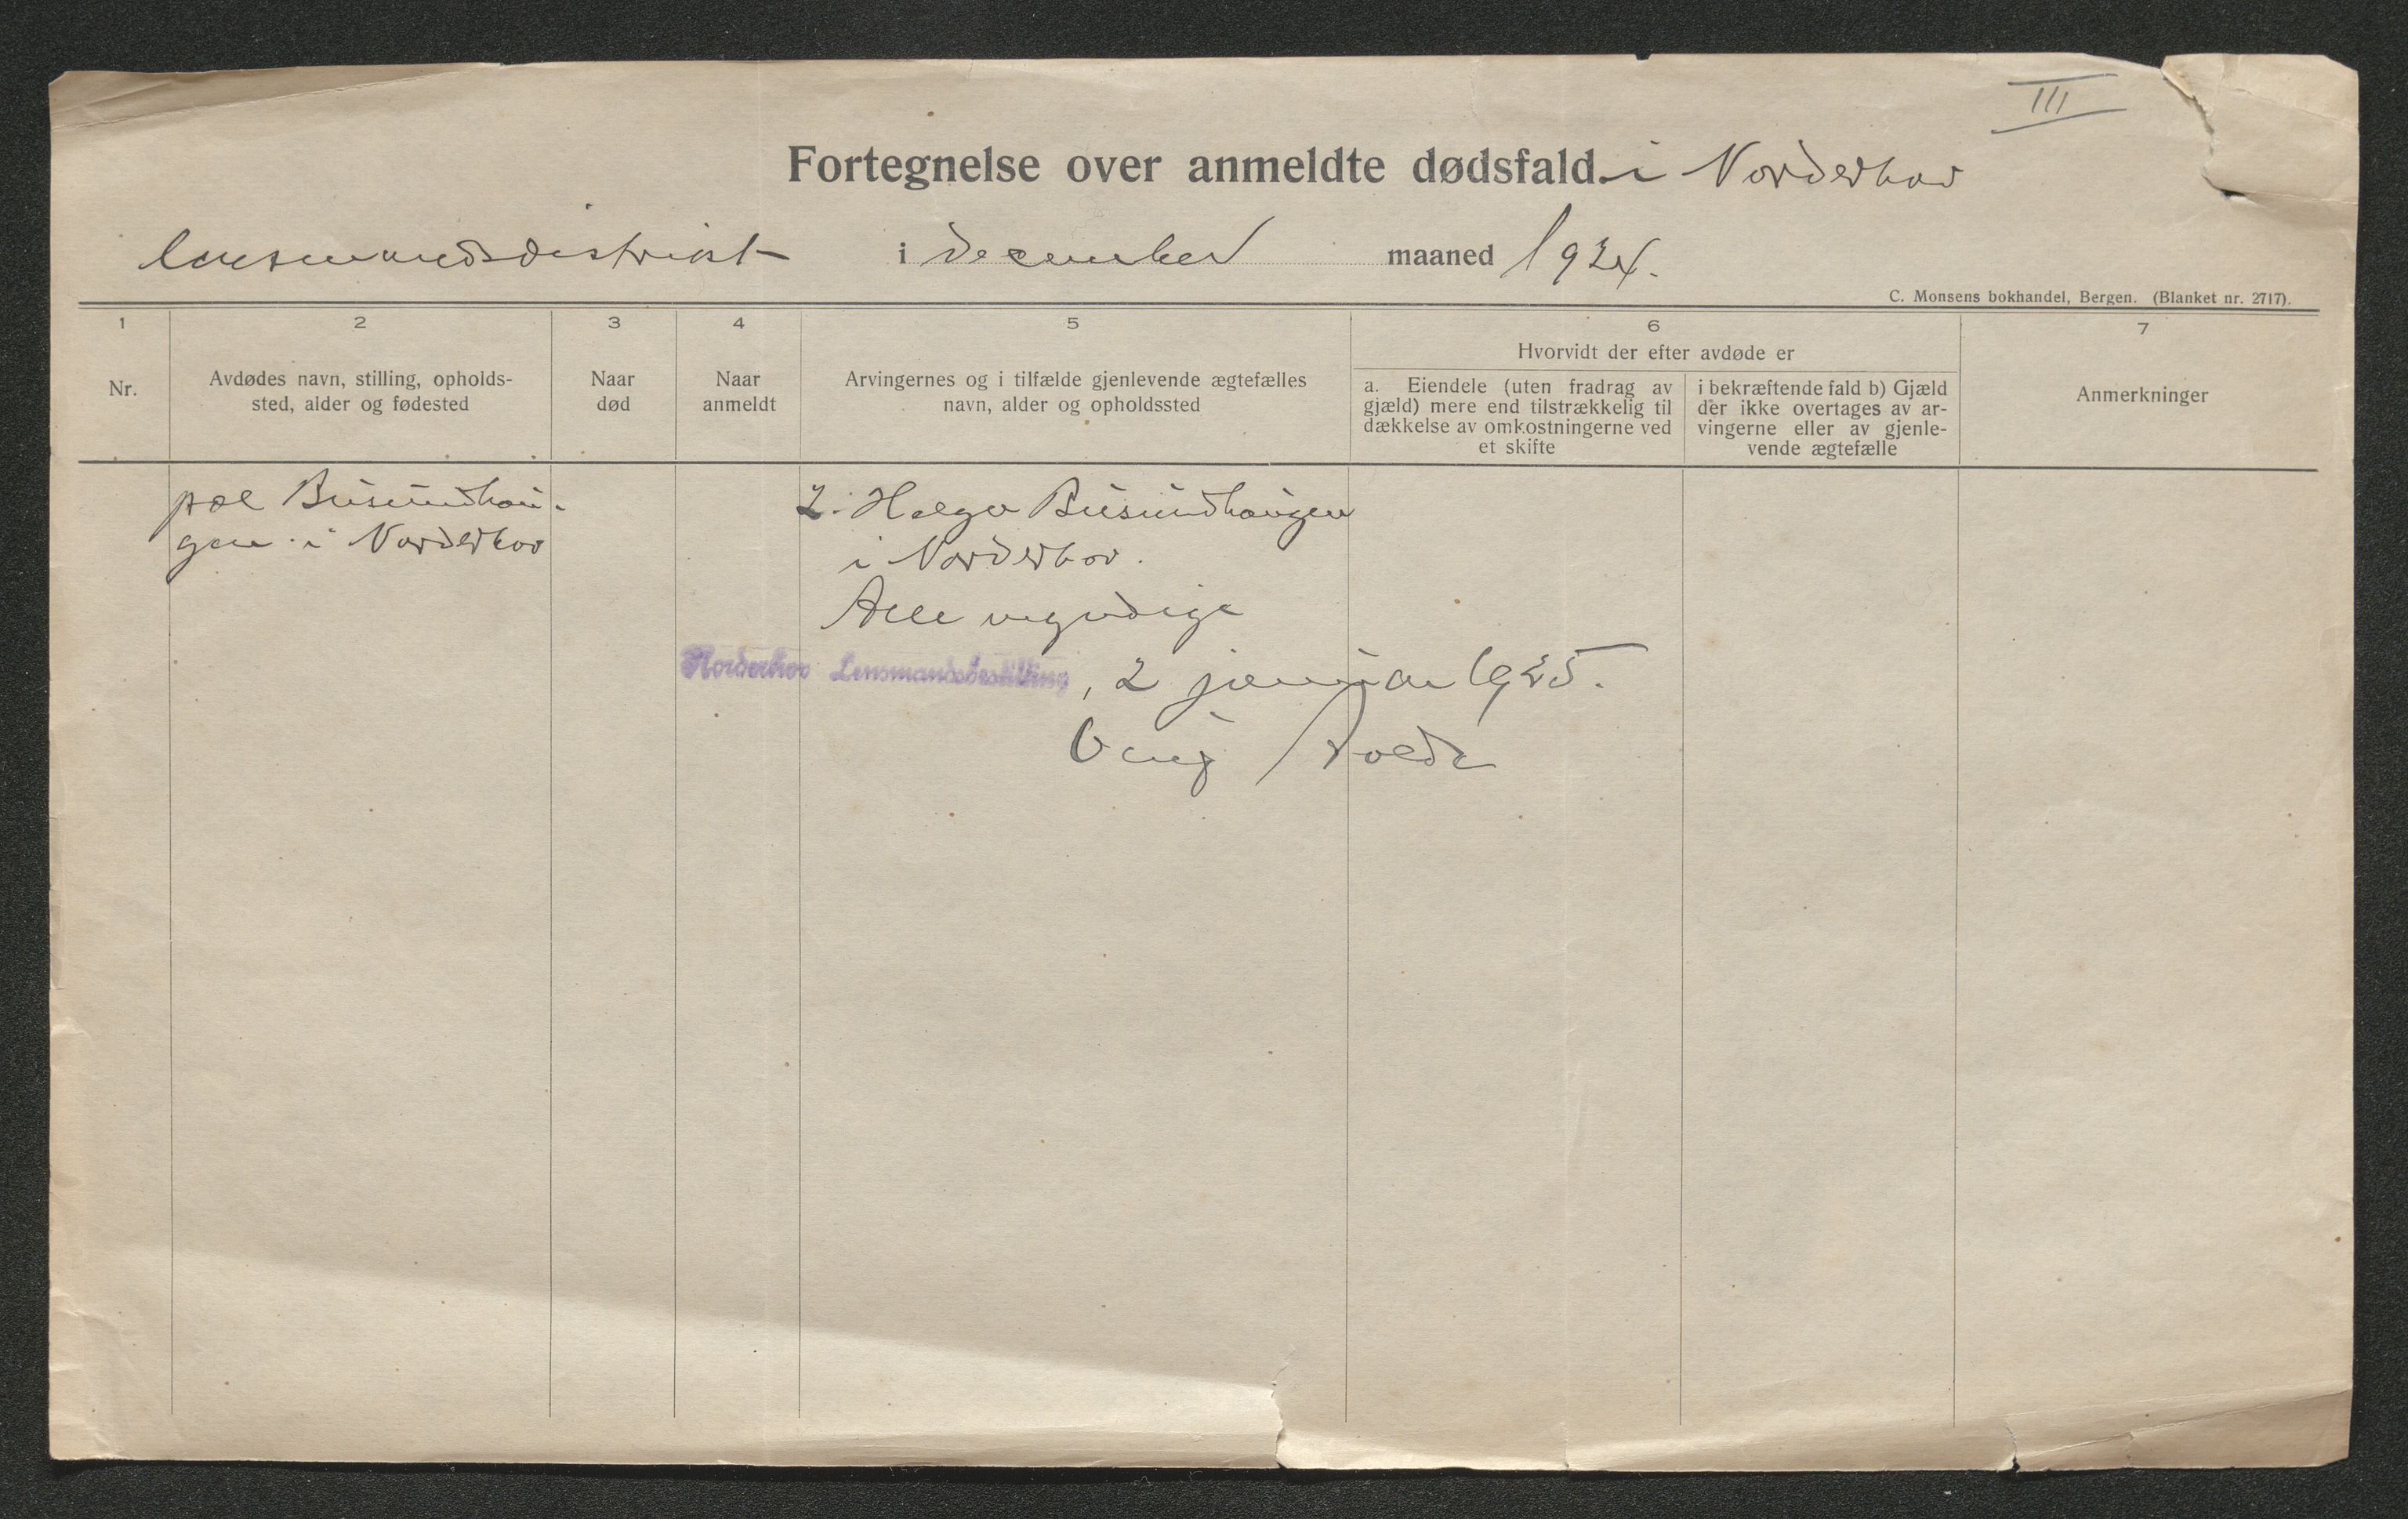 III
Fortegnelse over anmeldte dødsfald i Norderhov
lensmandsdistrikt i december maaned 1924.
C. Monsens bokhandel, Bergen. (Blanket nr. 2717).
1 2 3 4 5 6 7
Nr.
Avdødes navn, stilling, opholds-
sted, alder og fødested
Naar
død
Naar
anmeldt
Arvingernes og i tilfælde gjenlevende ægtefælles
navn, alder og opholdssted
Hvorvidt der efter avdøde er
a. Eiendele (uten fradrag av
gjæld) mere end tilstrækkelig til
dækkelse av omkostningerne ved
et skifte
i bekræftende fald b) Gjæld
der ikke overtages av ar-
vingerne eller av gjenle-
vende ægtefælle
Anmerkninger
pæl Busundhau-
gen i Norderhov
2. Helge Busundhaugen
i Norderhov.
Alle myndige
Norderhov Lensmandsbestilling, 2 januar 1925.